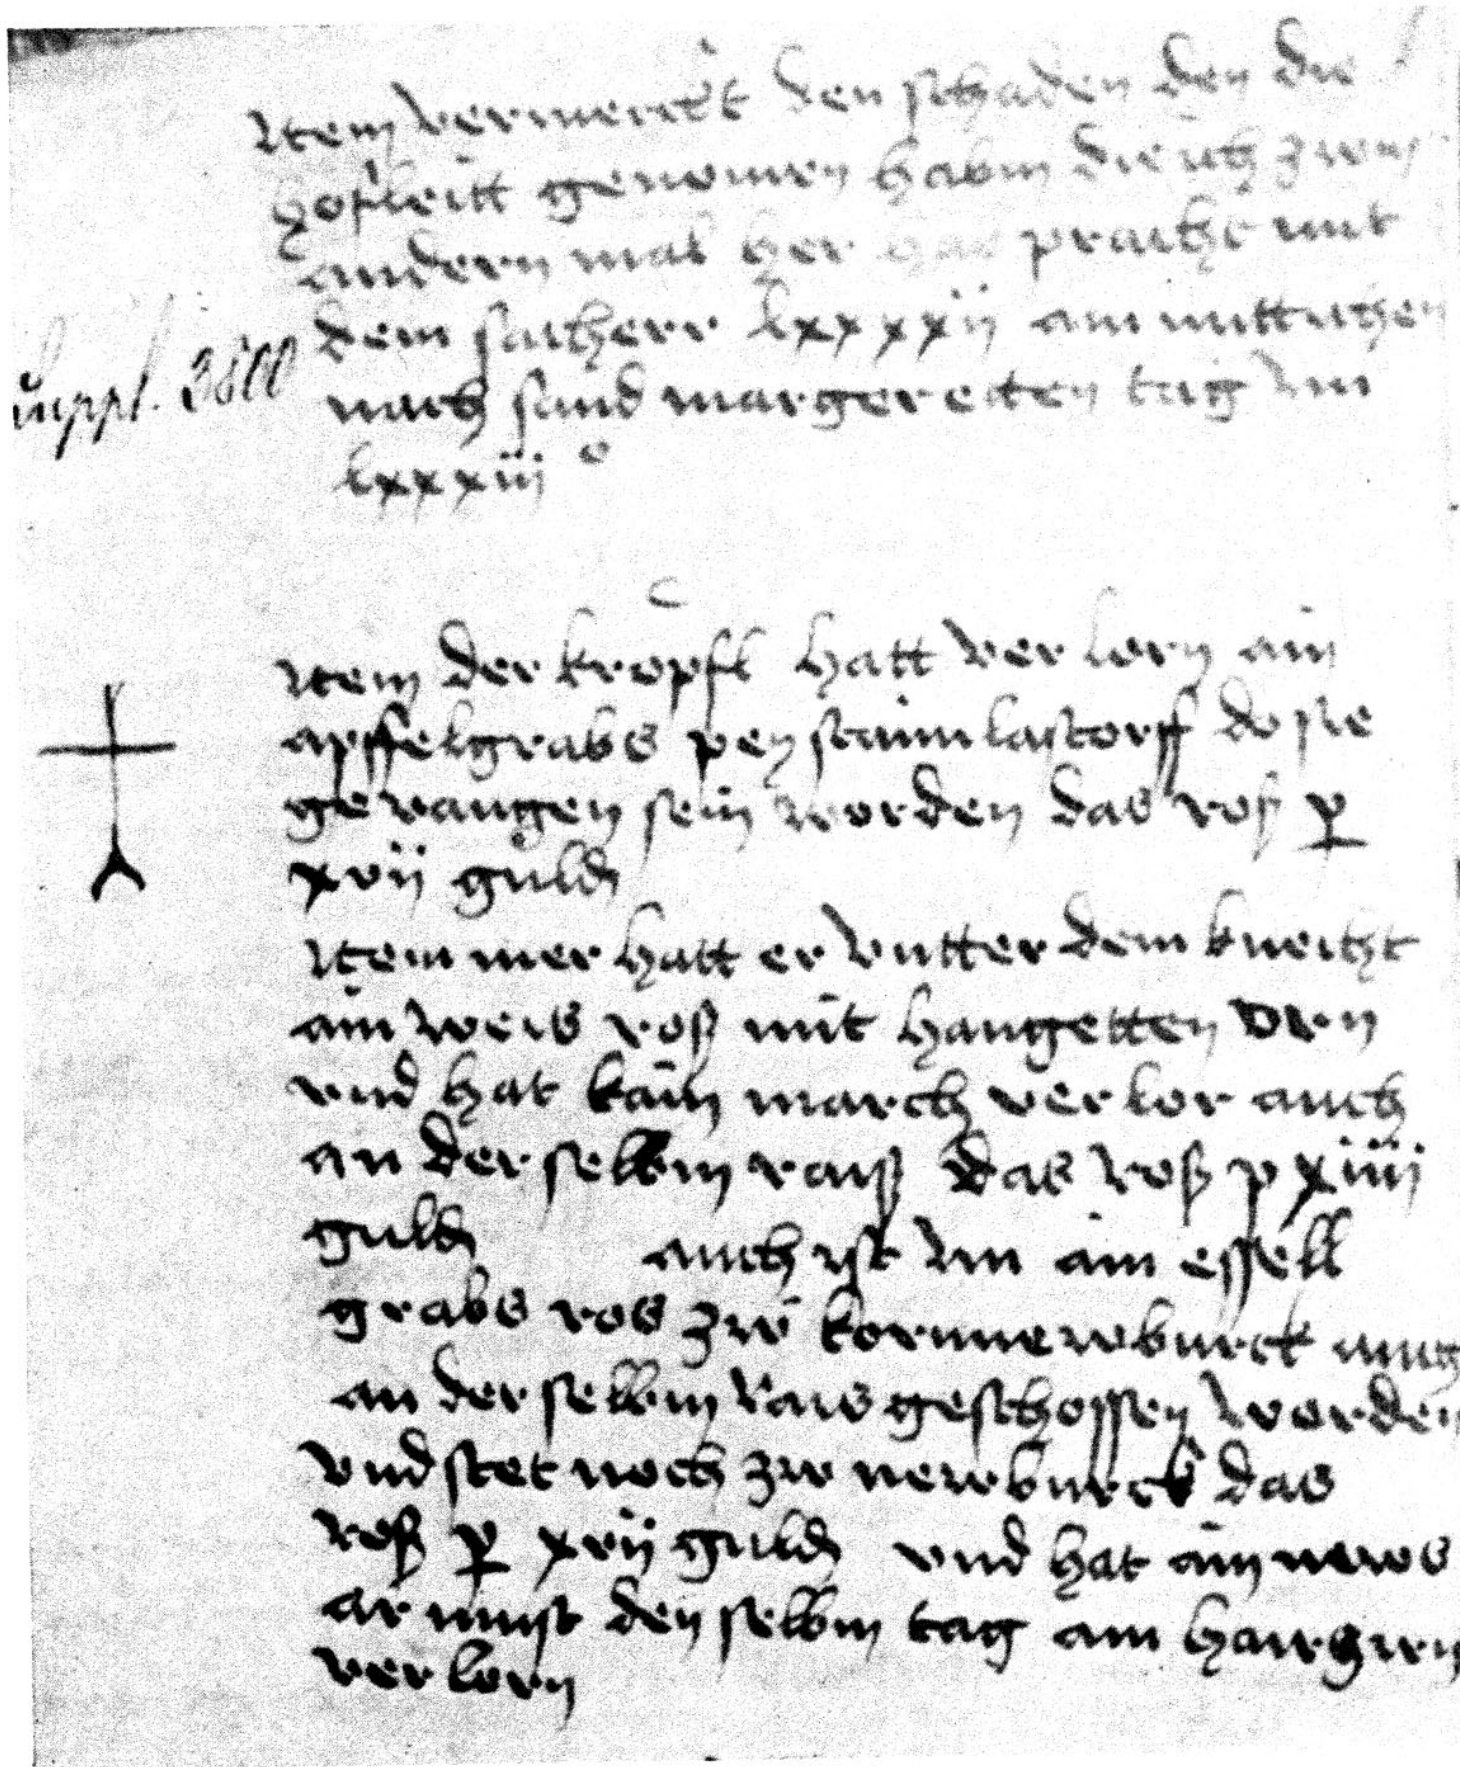 Item vermerckt den schaden den die
hofleitt genomen habm die ich zum
andern mal her hab pracht mit
dem lxxxxii am mittichen
nach sand margeretten tag im
lxxxiii o
Suppl. 3300
Item der kropfl hatt ver lorn ain
apffelgrabs pey stainlastorff do sie
gevangen sein worden das ros p
xvii guldn
Item mer hatt er vntter dem knecht
ain weis roß mit hangetten orn
vnd hat kain march verlor auch
an der selbm raiß das roß p xiiii
guldn auch ist im ain essell
grabs ros zw kornnewburck auch
an der selbm rais geschossen worden
vnd stet noch zw newburck das
roß p xvii guldn vnd hat ain news
armust den selbm tag am
ver lorn